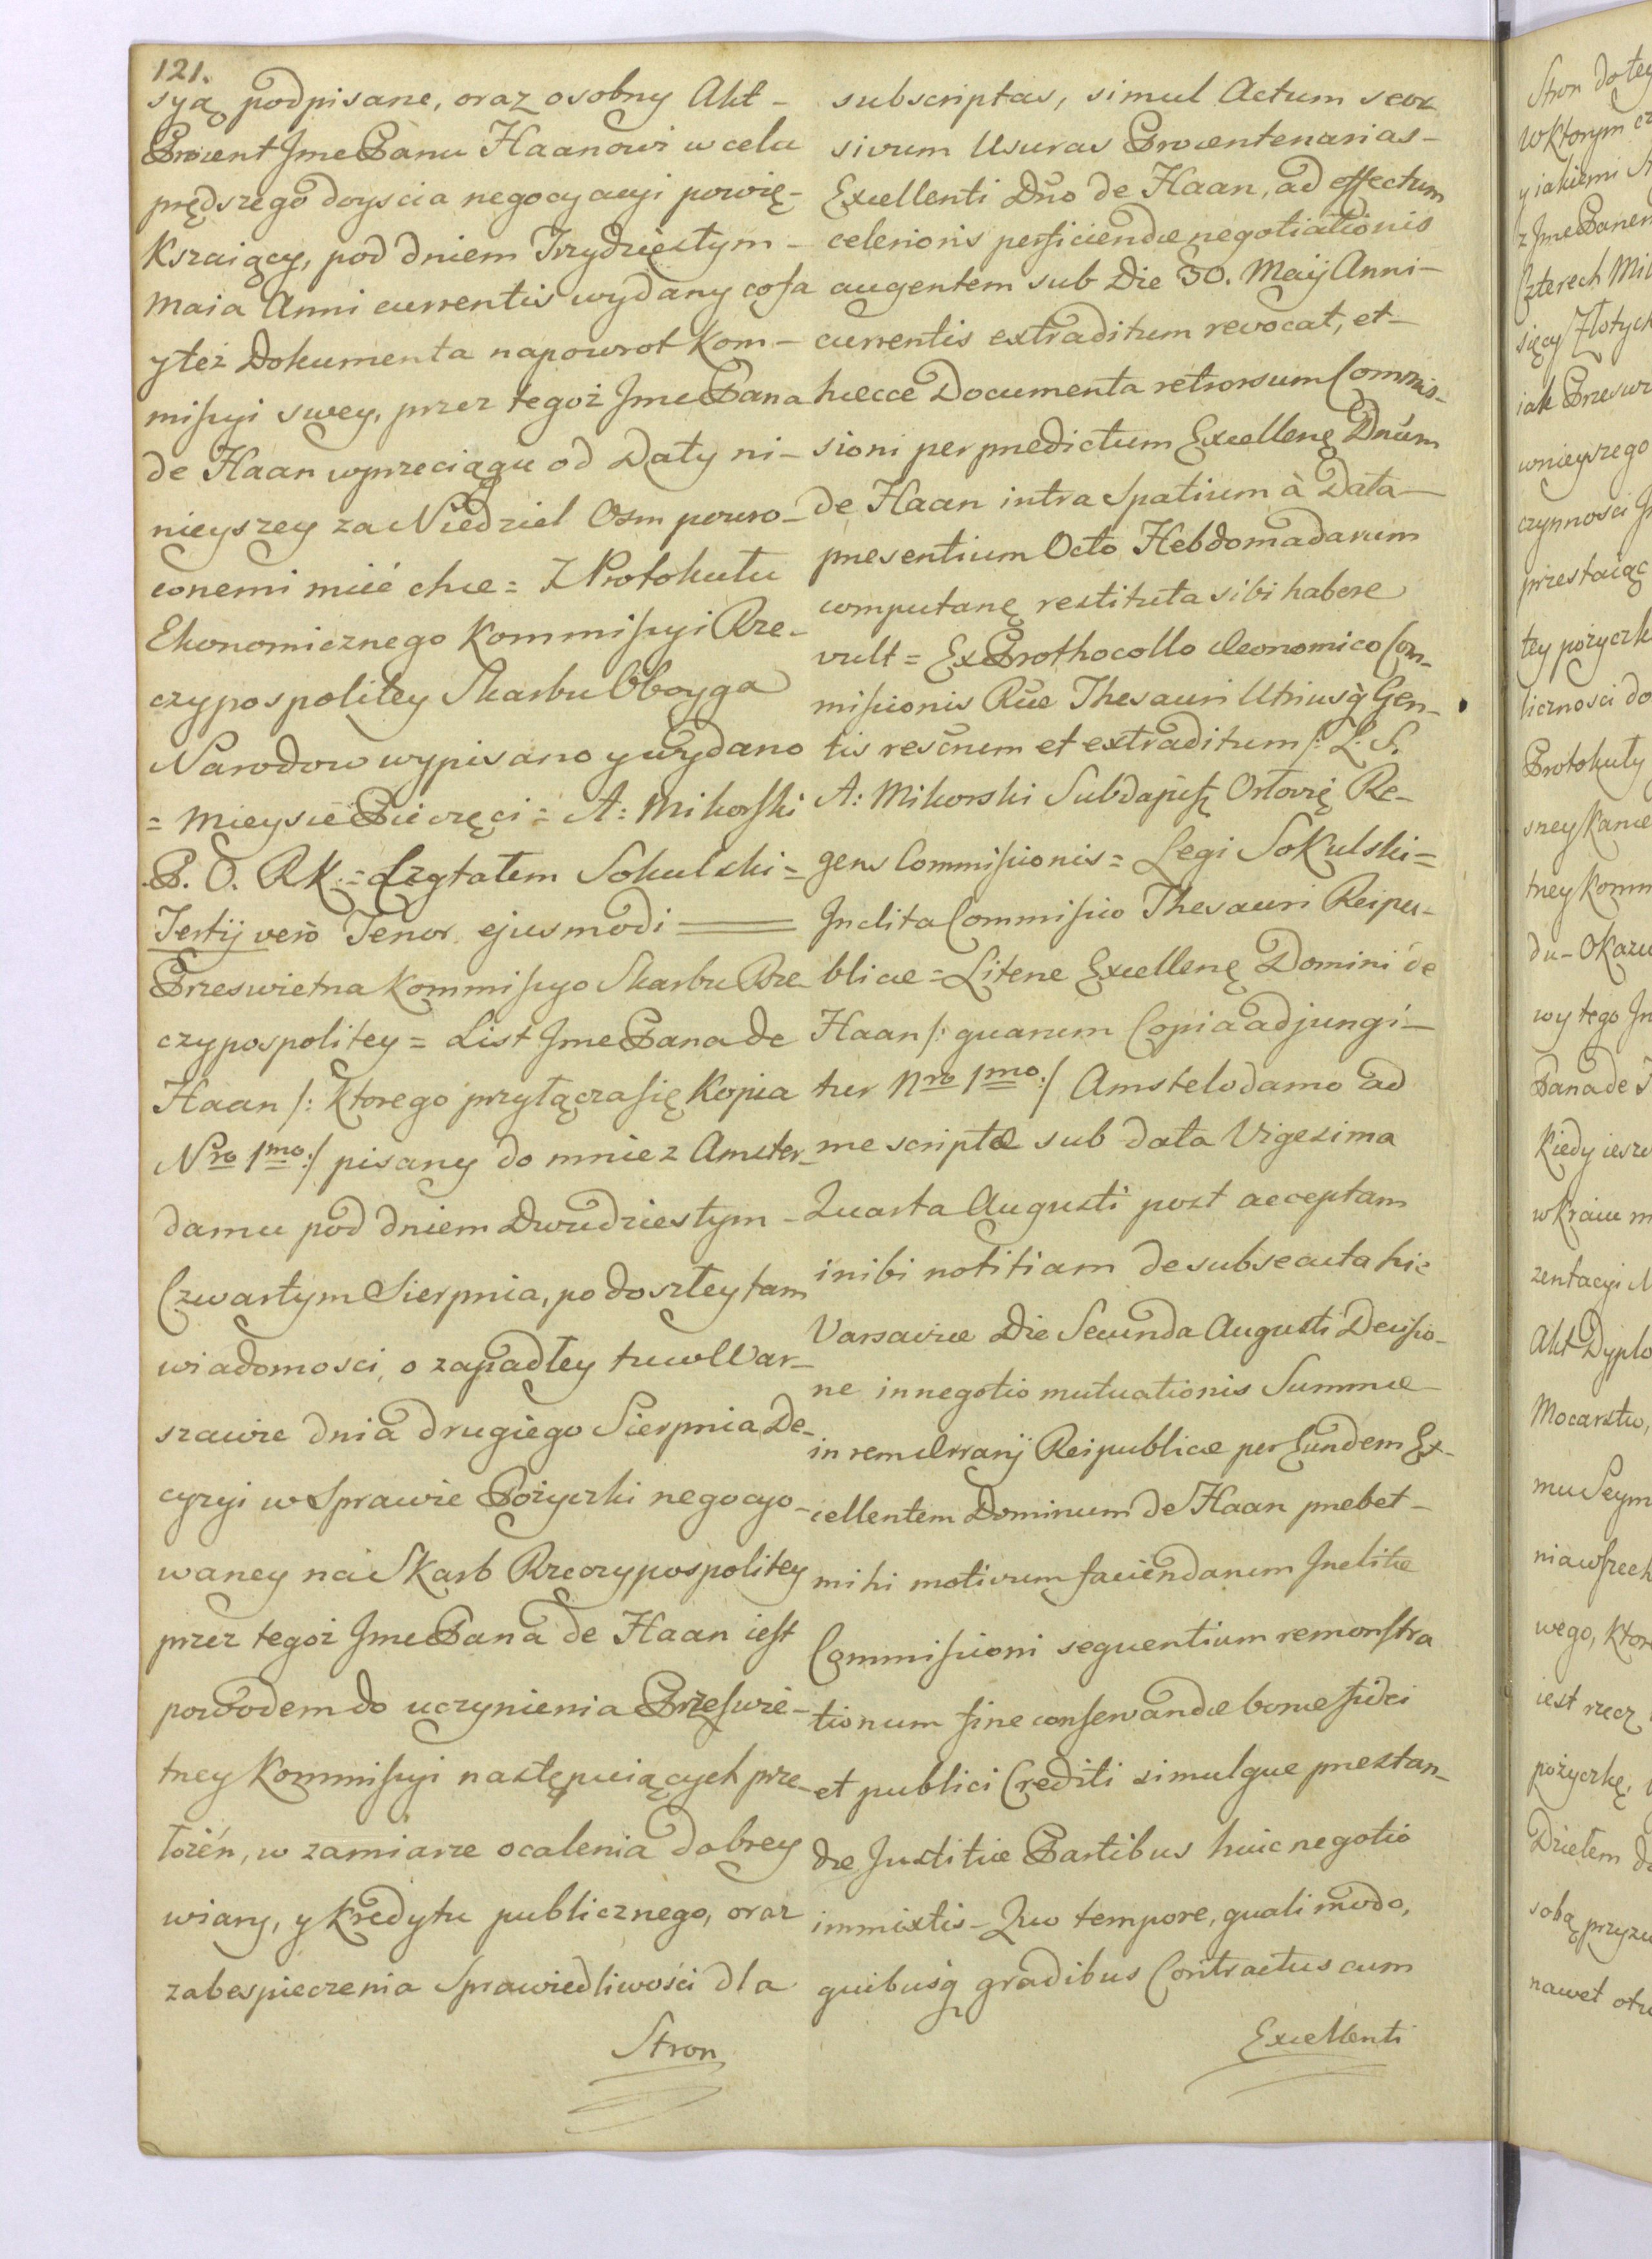 121.
syą podpisane, oraz osobny Akt –
Procent Jme Panu Haanowi w celu
prędszego doyscia negocyacyi powię–
kszaiący, pod dniem Trzydziestym –
Maia Anni currentis wydany cofa
y też Dokumenta napowrot kom–
missyi swey, przez tegoż Jme Pana
de Haan w przeciągu od Daty ni–
nieyszey za Niedziel Osm powro–
conemi mieć chce = Z Protokułu
Ekonomicznego Kommissyi Rze–
czypospolitey Skarbu Oboyga
Narodow wypisano y wydano
= Mieysce Pieczęci = A: Mikorski
P. O. R K. = Czytałem Sokulski =
Tertij verò Tenor ejusmodi =
Przeswietna Kommissyo Skarbu Rze
czypospolitey = List Jme Pana de
Haan /: ktorego przyłącza się Kopia
Nro 1mo :/ pisany do mnie z Amster–
damu pod dniem Dwudziestym –
Czwartym Sierpnia, po doszłey tam
wiadomosci, o zapadłey tu w War–
szawie dnia drugiego Sierpnia De–
cyzyi w Sprawie Pożyczki negocyo–
waney na Skarb Rzeczypospolitey
przez tegoż Jme Pana de Haan iest
powodem do uczynienia Przeswie–
tney Kommissyi następuiących prze–
łożeń, w zamiarze ocalenia dobrey
wiary, y kredytu publicznego, oraz
zabespieczenia Sprawiedliwości dla
Stron
subscriptas, simul Actum seor
sivum Usuras Procentenarias –
Excellenti Dño de Haan, ad effectum
celerioris perficiendæ negotiationis
augentem sub Die 30. Maij Anni –
currentis extraditum revocat, et –
hæcce Documenta retrorsum Commis–
sioni per prædictum Excellenę Dnum
de Haan intra Spatium à Data –
præsentium Octo Hebdomadarum
computanę restituta sibi habere
vult = Ex Prothocollo Œconomico Com–
missionis Rűæ Thesauri Utriusq̀ Gen–
tis rescñum et extraditum /: L. S.
A: Mikorski Subdapifę Ostovię Re–
gens Commissionis = Legi Sokulski =
Inclita Commissio Thesauri Reipu–
blicæ = Literæ Excellenę Domini de
Haan /: quarum Copia adjungi–
tur Nro 1mo :/ Amstelodamo ad
me scriptæ sub data Vigesima
Quarta Augusti post acceptam
inibi notitiam de subsecuta hic
Varsaviæ Die Secunda Augusti Decisio–
ne in negotio mutuationis Summæ –
in rem Ærarij Reipublicæ per Eundem Ex–
cellentem Dominum de Haan præbet –
mihi motivum faciendarum Inclitæ
Commissioni sequentium remonstra
tionum fine conservandæ bonæ fidei
et publici Crediti simulque præstan–
dæ Justitiæ Partibus huic negotio
immixtis – Quo tempore, quali modo,
quibusq̀ gradibus Contractus cum
Excellenti
Stron do tey
w ktorym
y iakiemi
z Jme Panem
Czterech
Złotych
iak
wnieyszego
czynnosci
przestaiąc
tey
licznosci do
Protokuły
tney
du – Okazu
wy tego
Pana de
Kiedy
w kraiu
zentacyi
Akt Dyplo
Mocarstw,
mu Seym
wego,
iest rzecz
pożyczkę,
Dziełem
sobą
nawet